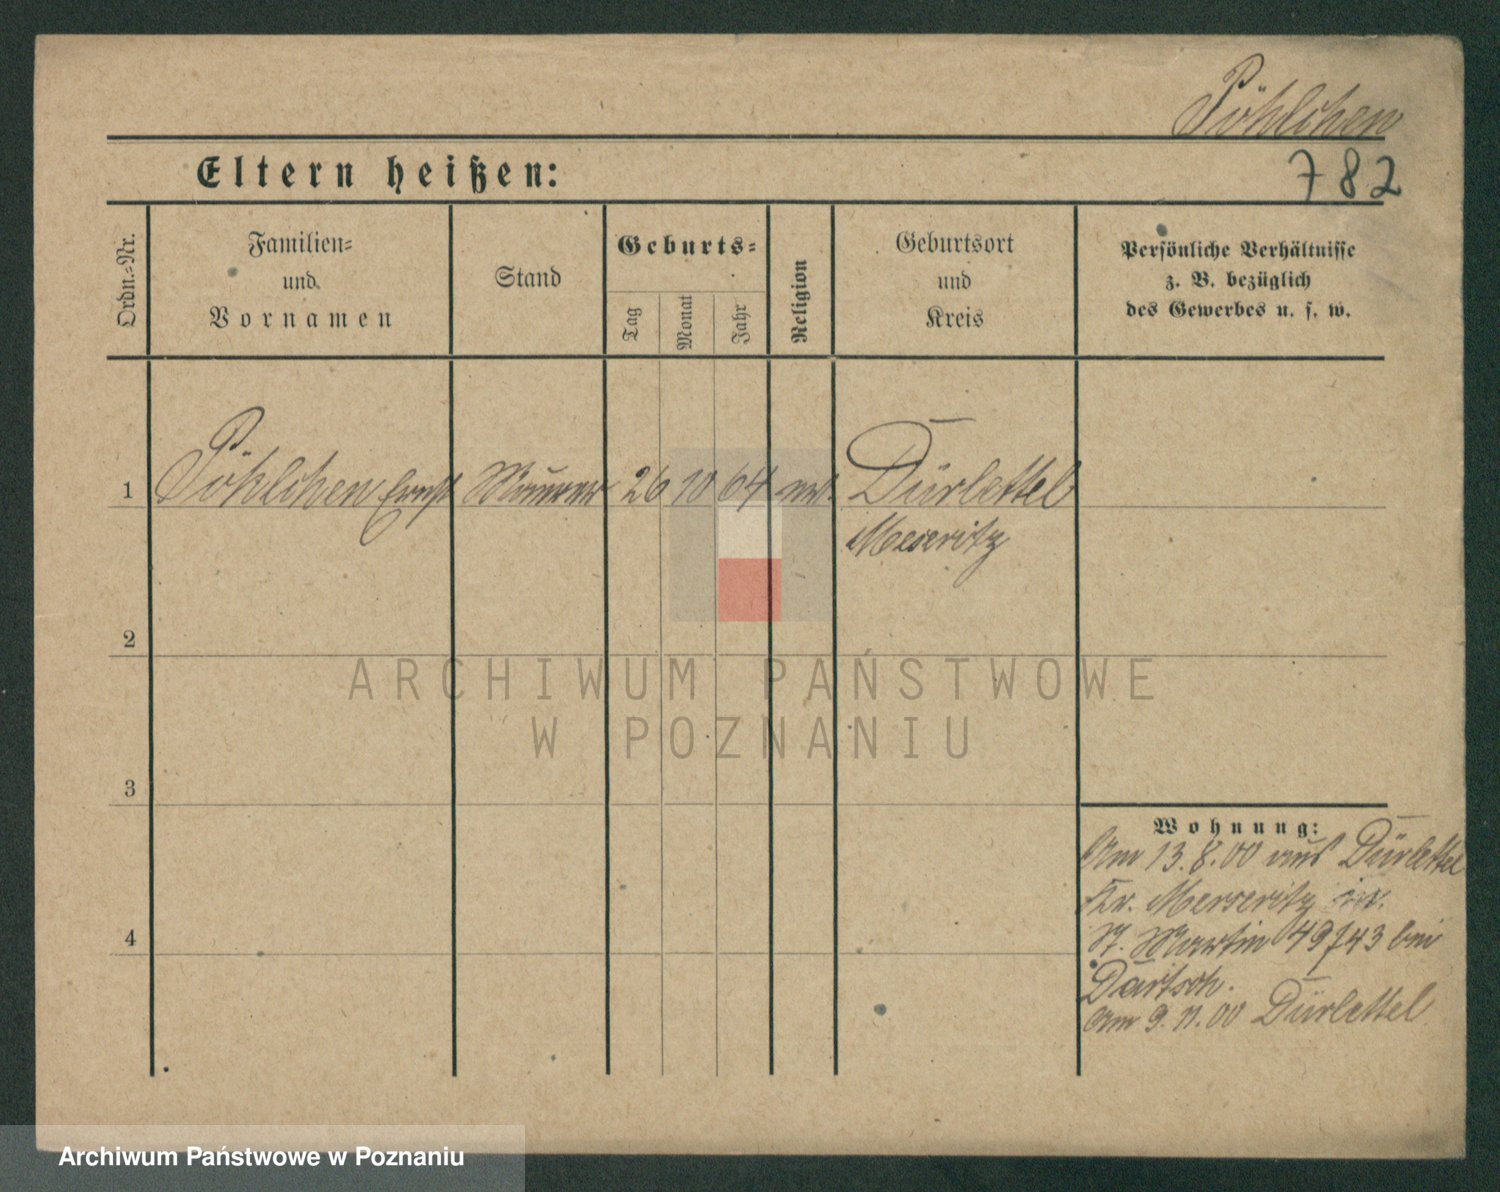 Pöhlchen
Eltern heißen:
782
Ordn.=Nr.
Familien=
und
Vornamen
Stand
Geburts=
Tag
Monat
Jahr
Religion
Geburtsort
und
Kreis
Persönliche Verhältnisse
z. B. bezüglich
des Gewerbes u. s. w.
1 Pöhlchen Ernst Maurer 26 10 64 ev. Dürlettel
Meseritz
2
3
4
Wohnung:
Am 13.8.00 aus Dürlettel
Kr. Meseritz
St. Martin 49/43 bei
Dartsch.
Am 9.11.00 Dürlettel
ARCHIWUM PAŃSTWOWE
W POZNANIU
Archiwum Państwowe w Poznaniu